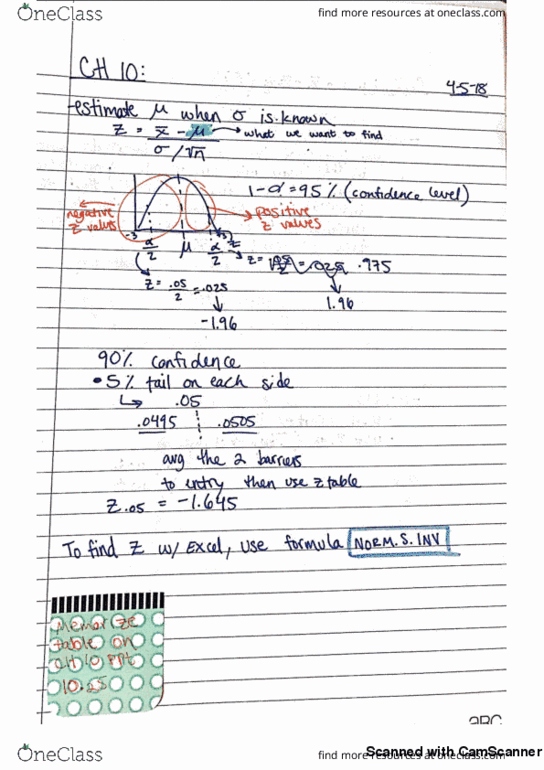 OneClass
find more resources at oneclass.com
CH 10:
4-5-18
-estimate μ when σ is known
Z = x̄ - μ → what we want to find
σ/√n
1-α = 95% (confidence level)
negative
Z values
positive
Z values
-3
3
α/2 μ α/2 Z
Z = .025 .975
1.96
Z = .05/2 = .025
-1.96
90% confidence
• 5% tail on each side
↳ .05
.0495 .0505
avg the 2 barriers
to entry then use z table
Z.05 = -1.645
To find Z w/ Excel, use formula NORM.S.INV
Memorize
table on
CH 10 PPT
10.25
Scanned with CamScanner
OneClass
find more resources at oneclass.com